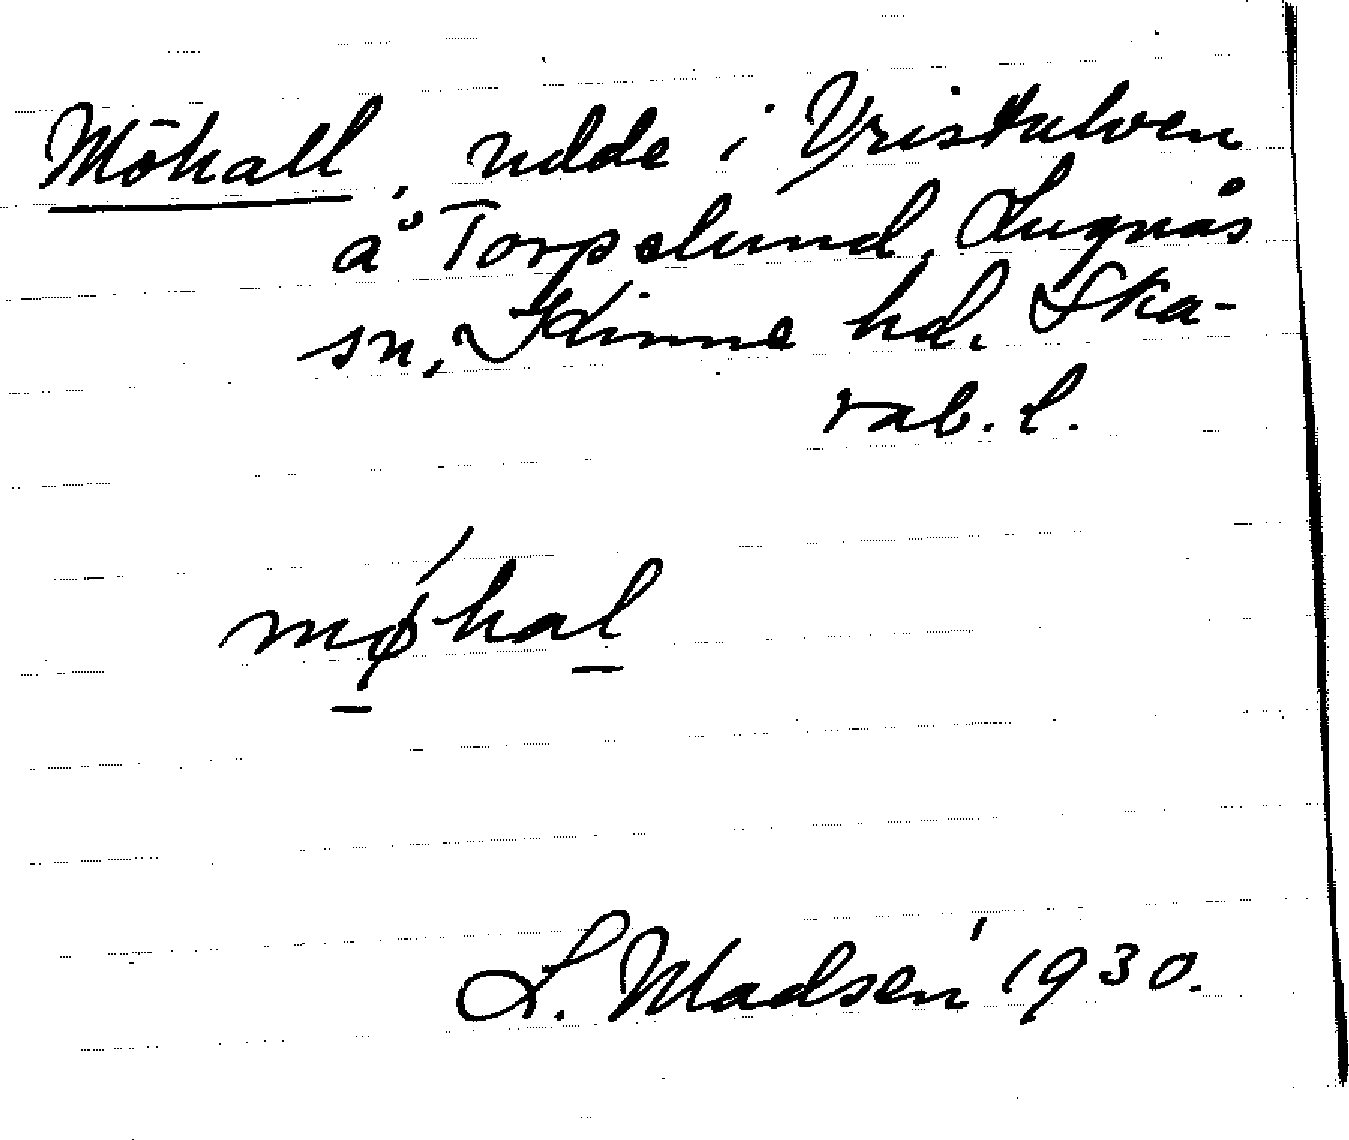 Möhall, udde i Vristulven
å Torpslund, Lugnås
sn, Kinne hd. Ska-
rab. l.
møhal
L. Madsén 1930.